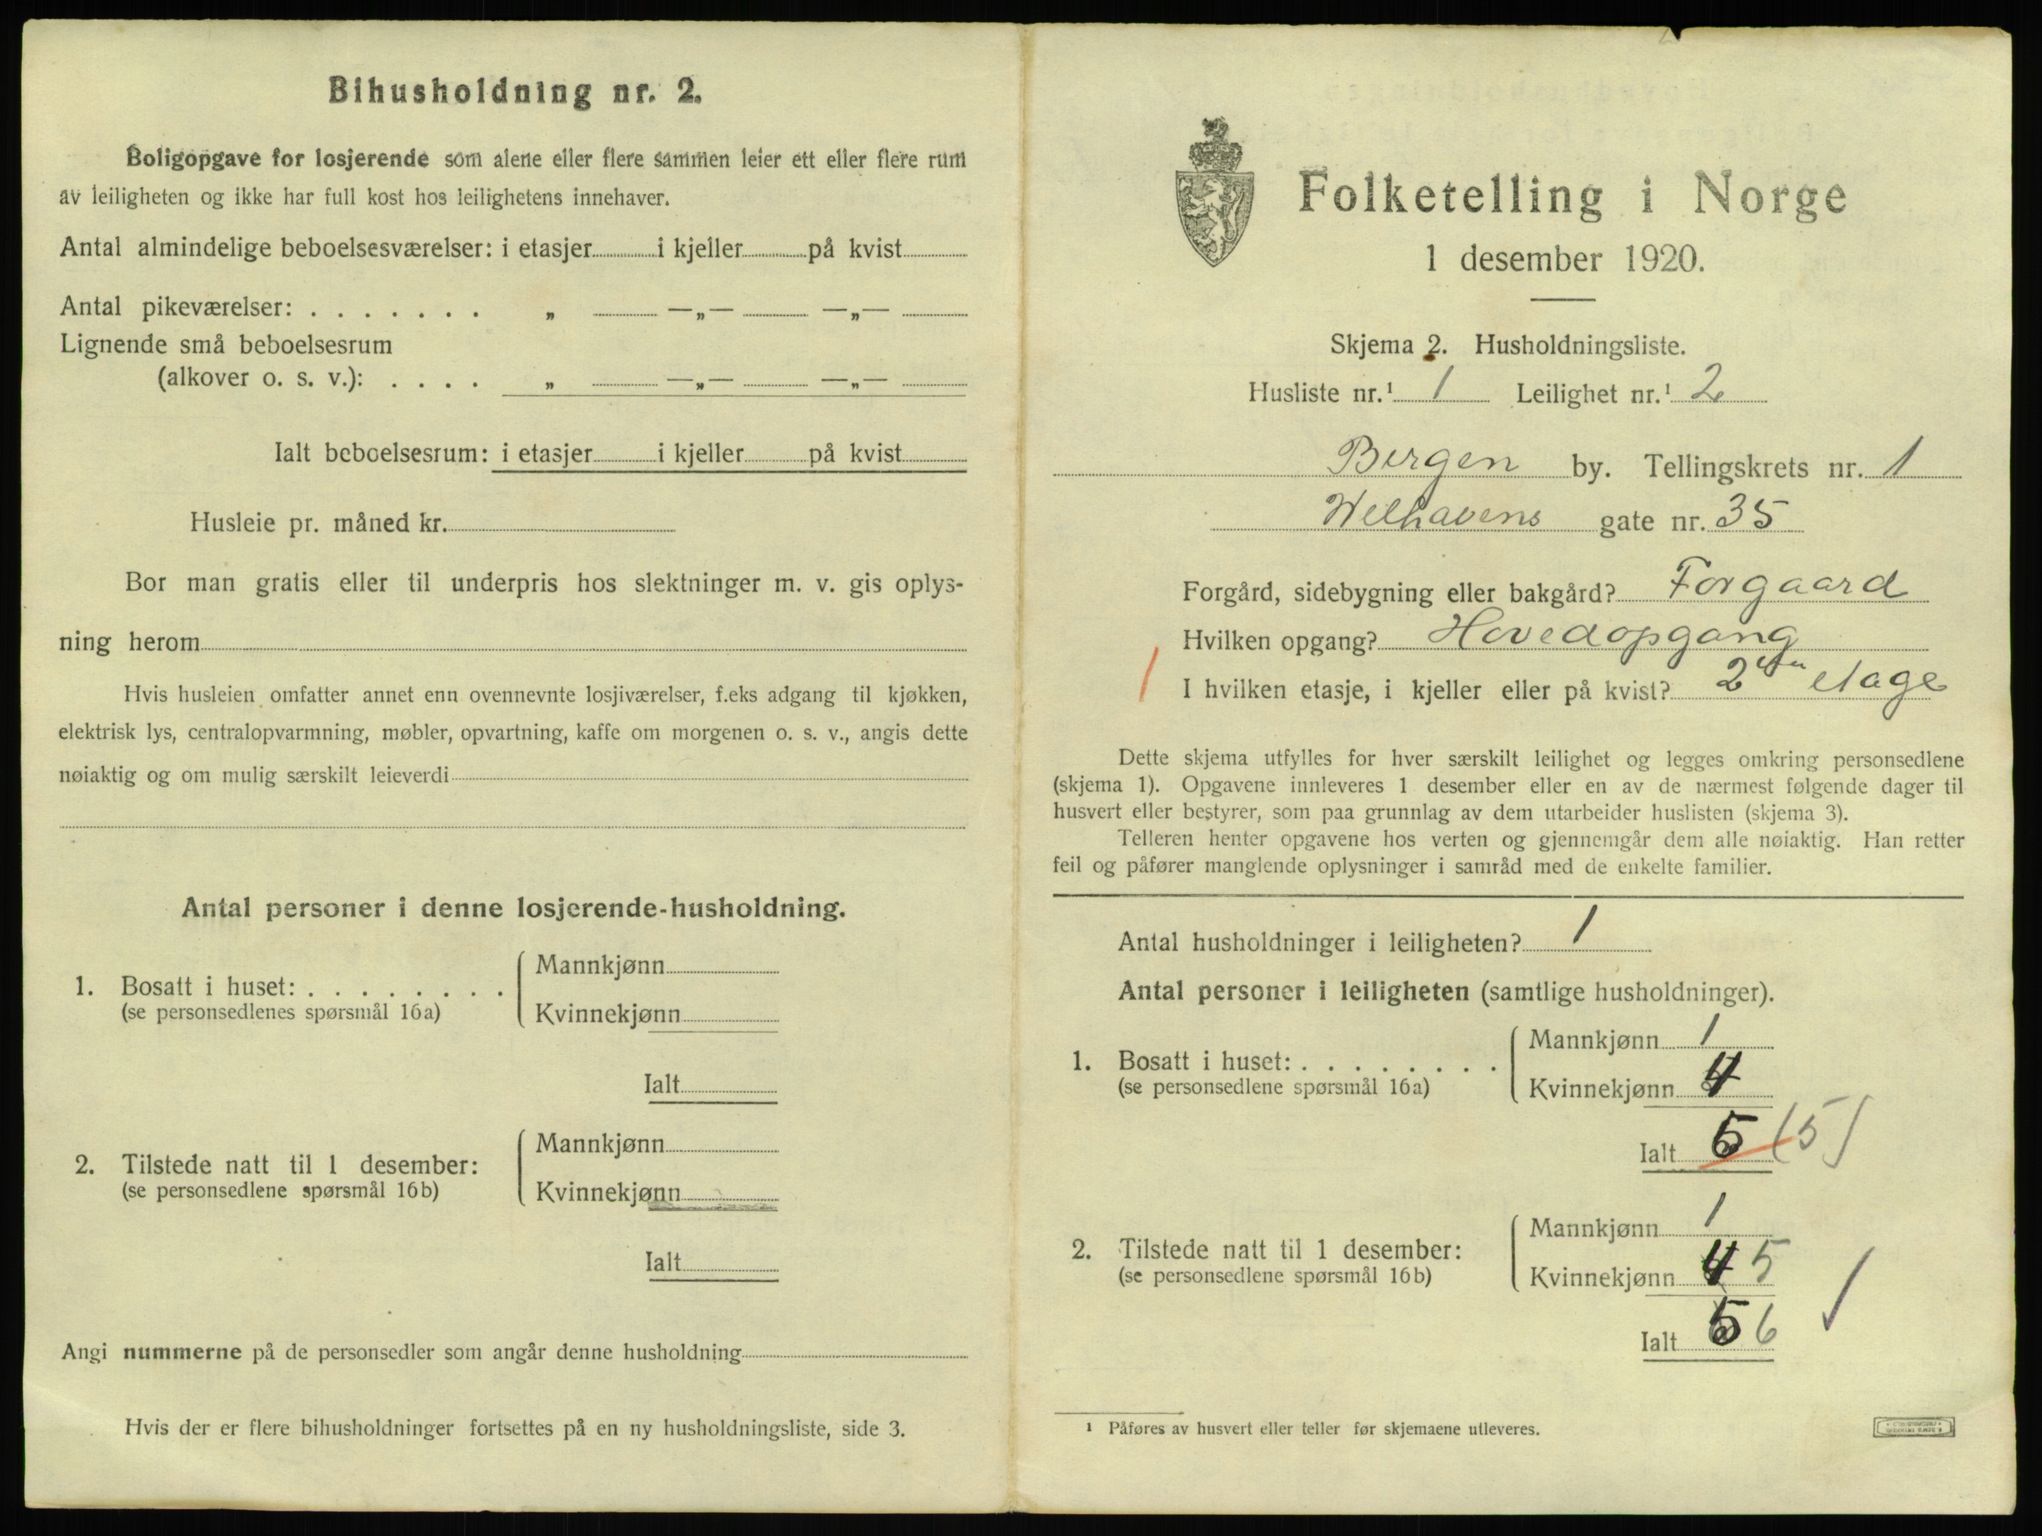 Bihusholdning nr. 2.
Boligopgave for losjerende som alene eller flere sammen leier ett eller flere rum
av leiligheten og ikke har full kost hos leilighetens innehaver.
Antal almindelige beboelsesværelser: i etasjer i kjeller på kvist
Antal pikeværelser: . . . . . . . „ —„— —„—
Lignende små beboelsesrum
(alkover o. s. v.): . . . . „ —„— —„—
Ialt beboelsesrum: i etasjer i kjeller på kvist
Husleie pr. måned kr.
Bor man gratis eller til underpris hos slektninger m. v. gis oplys-
ning herom
Hvis husleien omfatter annet enn ovennevnte losjiværelser, f.eks adgang til kjøkken,
elektrisk lys, centralopvarmning, møbler, opvartning, kaffe om morgenen o. s. v., angis dette
nøiaktig og om mulig særskilt leieverdi
Antal personer i denne losjerende-husholdning.
1. Bosatt i huset: . . . . . . . . Mannkjønn
(se personsedlenes spørsmål 16a) Kvinnekjønn
Ialt
2. Tilstede natt til 1 desember: Mannkjønn
(se personsedlene spørsmål 16b) Kvinnekjønn
Ialt
Angi nummerne på de personsedler som angår denne husholdning
Hvis der er flere bihusholdninger fortsettes på en ny husholdningsliste, side 3.
Folketelling i Norge
1 desember 1920.
Skjema 2. Husholdningsliste.
Husliste nr.¹ 1 Leilighet nr.¹ 2
Bergen by. Tellingskrets nr. 1
Welhavens gate nr. 35
Forgård, sidebygning eller bakgård? Forgaard
Hvilken opgang? Hovedopgang
1 I hvilken etasje, i kjeller eller på kvist? 2den etage
Dette skjema utfylles for hver særskilt leilighet og legges omkring personsedlene
(skjema 1). Opgavene innleveres 1 desember eller en av de nærmest følgende dager til
husvert eller bestyrer, som paa grunnlag av dem utarbeider huslisten (skjema 3).
Telleren henter opgavene hos verten og gjennemgår dem alle nøiaktig. Han retter
feil og påfører manglende oplysninger i samråd med de enkelte familier.
Antal husholdninger i leiligheten? 1
Antal personer i leiligheten (samtlige husholdninger).
1. Bosatt i huset: . . . . . . . . Mannkjønn 1
(se personsedlene spørsmål 16a) Kvinnekjønn 4
Ialt 5 (5)
2. Tilstede natt til 1 desember: Mannkjønn 1
(se personsedlene spørsmål 16b) Kvinnekjønn 4 5
Ialt 5 6
¹ Påføres av husvert eller teller før skjemaene utleveres.